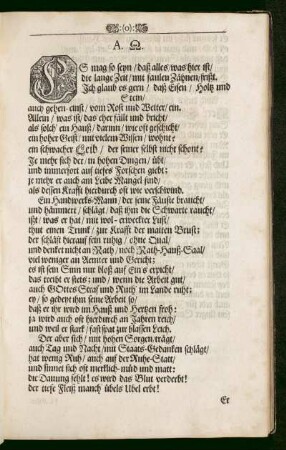 :(o):
A. Ω.
ES mag so seyn / daß alles was hier ist /
die lange Zeit / mit faulen Zähnen / frißt.
Ich glaub es gern / daß Eisen / Holtz und
Stein /
auch gehen einst / vom Rost und Wetter / ein.
Allein / was ist / das eher fällt und bricht /
als solch' ein Hauß / darinn / wie oft geschicht /
ein hoher Geist / mit vielem Wissen / wohnt:
ein schwacher Leib / der seiner selbst nicht schont?
Je mehr sich der / in hohen Dingen / übt /
und immerfort auf tiefes Forschen giebt:
je mehr er auch am Leibe Mangel find /
als dessen Krafft hierdurch oft wie verschwind.
Ein Handwercks-Mann / der seine Fäuste braucht /
und hämmert / schlägt / daß ihm die Schwarte raucht /
ißt / was er hat / mit wol-erweckter Lust /
thut einen Trunk / zur Krafft der matten Brust:
der schläft hierauf fein ruhig / ohne Qual /
und denket nicht an Rath / noch Rath-Hauß-Saal /
viel weniger an Aemter und Gericht:
es ist sein Sinn nur bloß auf Eins erpicht /
das treibt er stets: und / wenn die Arbeit gut /
auch GOttes Straf und Ruth' im Lande ruht;
ey / so gedeyt ihm seine Arbeit so /
daß er ihr wird im Hauß und Hertzen froh:
ja wird auch oft hierdurch an Jahren reich /
und weil er stark / fast spat zur blassen Leich.
Der aber sich / mit hohen Sorgen trägt /
auch Tag und Nacht / mit Staats-Gedanken schlägt /
hat wenig Ruh / auch auf der Ruhe-Statt /
und findet sich oft merklich-müd und matt:
die Dauung fehlt! es wird das Blut verderbt!
der tiefe Fleiß manch übels Ubel erbt!
Er